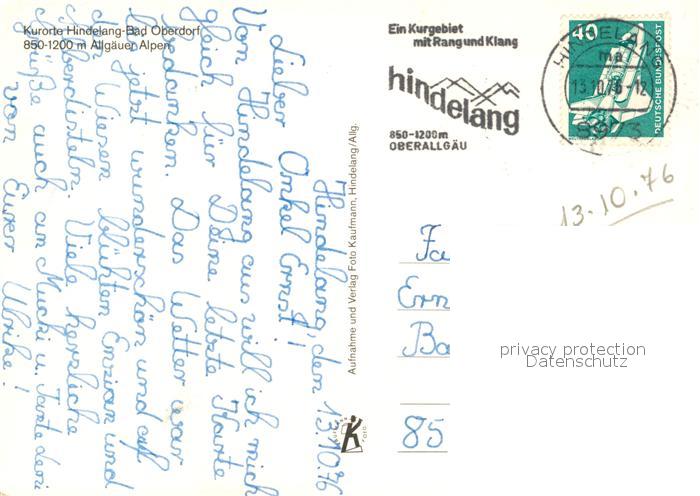 Kurorte Hindelang-Bad Oberdorf
850-1200 m Allgäuer Alpen
Hindelang, den 13.10.76
Lieber Onkel Ernst!
Von Hindelang aus will ich mich
gleich für Deine letzte Karte
bedanken. Das Wetter war
bis jetzt wunderschön und auf
den Wiesen blühten Enzian und
Silberdisteln. Viele herzliche
Grüße auch an Mucki u. Tante
von Eurer Ulrike!
Aufnahme und Verlag Foto Kaufmann, Hindelang/Allg.
FOTO
Ein Kurgebiet
mit Rang und Klang
hindelang
850-1200m
OBERALLGÄU
HINDELAN
ma
13.10.76-12
89 3
40
DEUTSCHE BUNDESPOST
13.10.76
Fa
Ern
Ba
85
privacy protection
Datenschutz